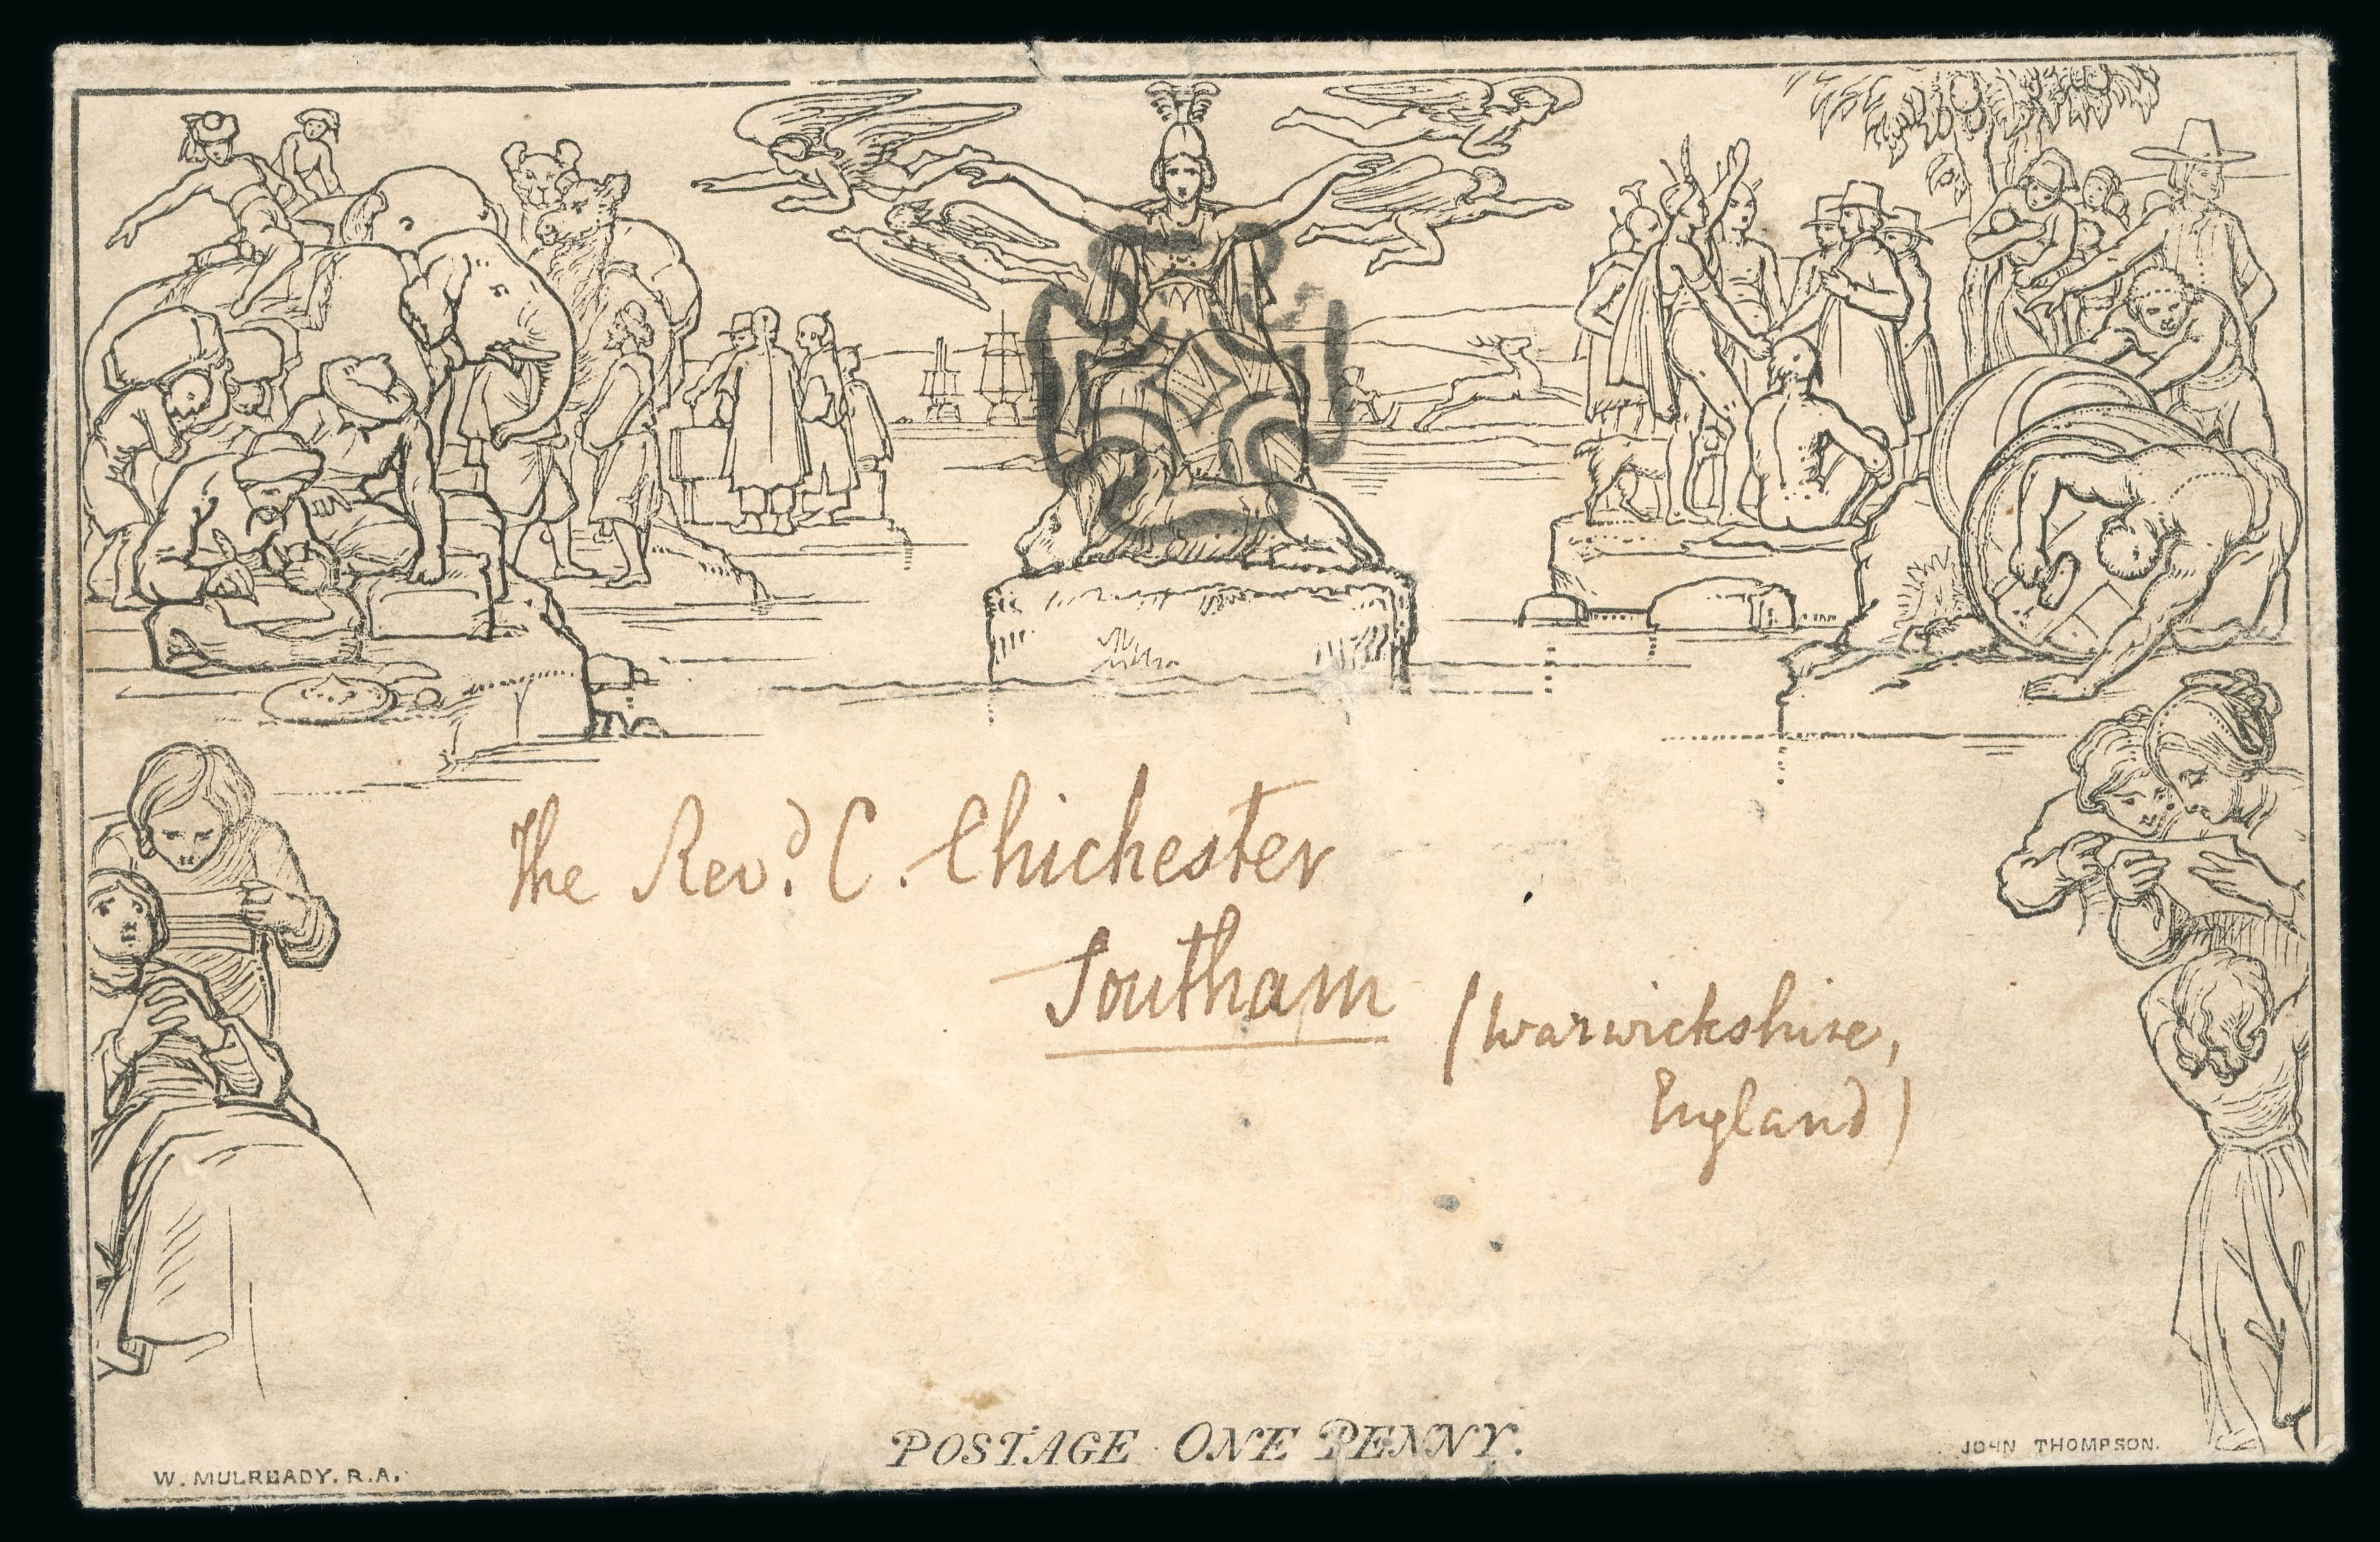 The Revd. C. Chichester
Southam
(Warwickshire,
England)
POSTAGE ONE PENNY.
W. MULREADY. R.A.
JOHN THOMPSON.